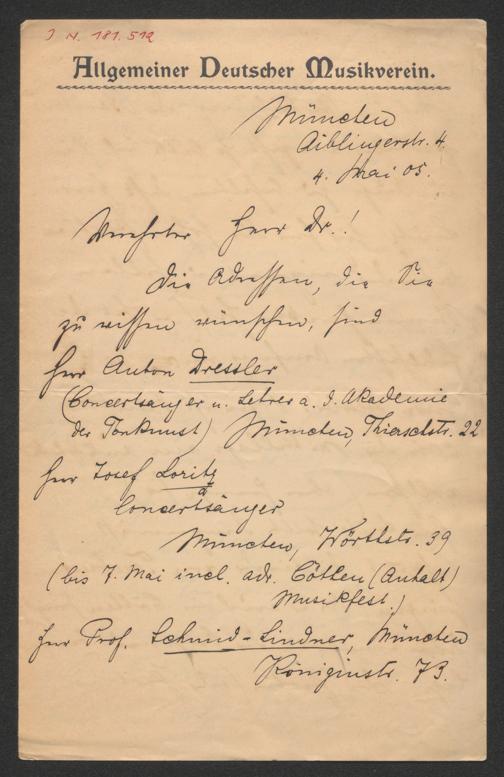 J. N. 181.512
Allgemeiner Deutscher Musikverein.
München
Aiblingerstr. 4.
4. Mai 05.
Verehrter Herr Dr.!
Die Adressen, die Sie
zu wissen wünschen, sind
Herr Anton Dressler
(Concertsänger u. Lehrer a. d. Akademie
der Tonkunst) München, Thierschstr. 22
Herr Josef Loritz
Concertsänger
München, Wörthstr. 39
(bis 7. Mai incl. adr. Cöthen (Anhalt)
Musikfest.)
Herr Prof. Schmid-Lindner, München
Königinstr. 73.